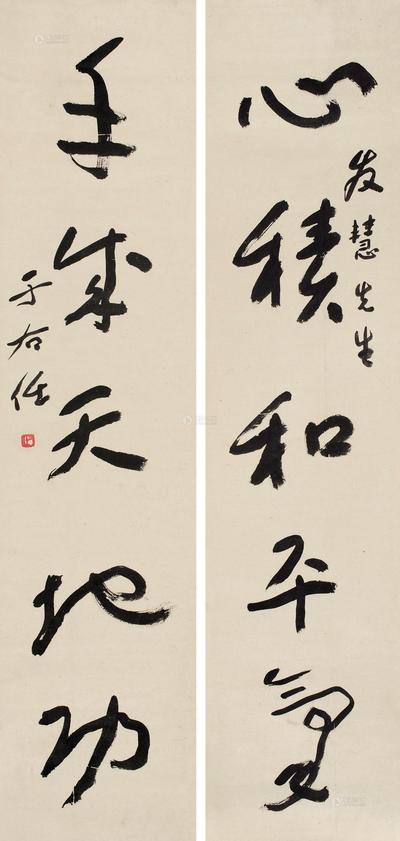 心積和平氣
友慧先生
手成天地功
于右任